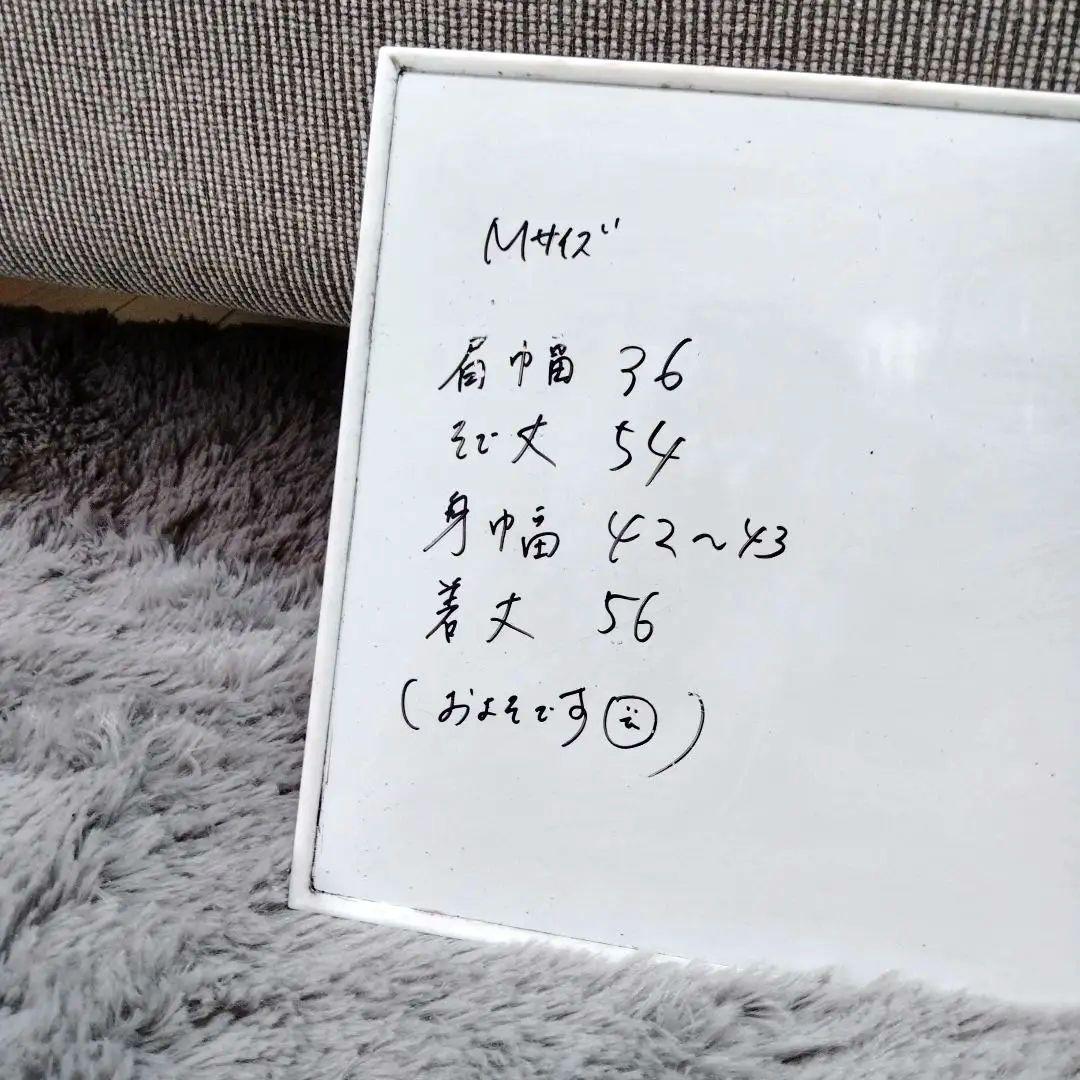 Mサイズ
肩巾幅 36
そで丈 54
身巾幅 42〜43
着丈 56
(およそです)